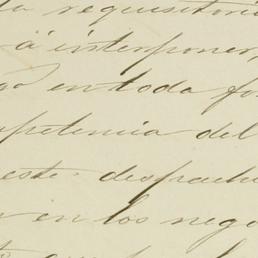 la requisitoria
á interponer,
en toda fo
mpetencia del
este despach
en los nego